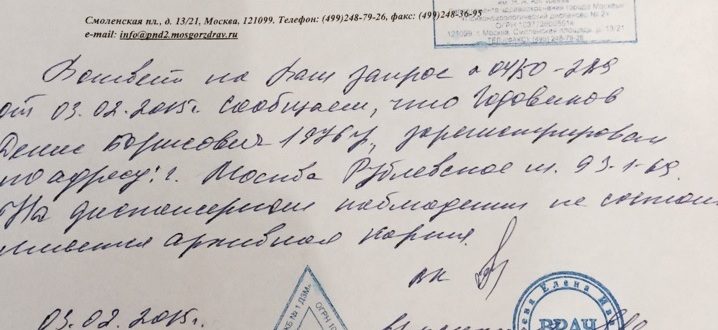 Смоленская пл., д. 13/21, Москва, 121099. Телефон: (499)248-79-26, факс: (499)248-36-95
e-mail: info@pnd2.mosgorzdrav.ru
121099, г. Москва, Смоленская площадь, д. 13/21
В ответ на Ваш запрос
от 03.02.2015г. сообщаем, что Годовиков
Денис Борисович 1976г., зарегистрирован
по адресу: г. Москва Рублевское ш. 93-1-69.
На диспансерном наблюдении не состоит
имеется архивная карта.
03.02.2015г.
Елена
ВРАЧ